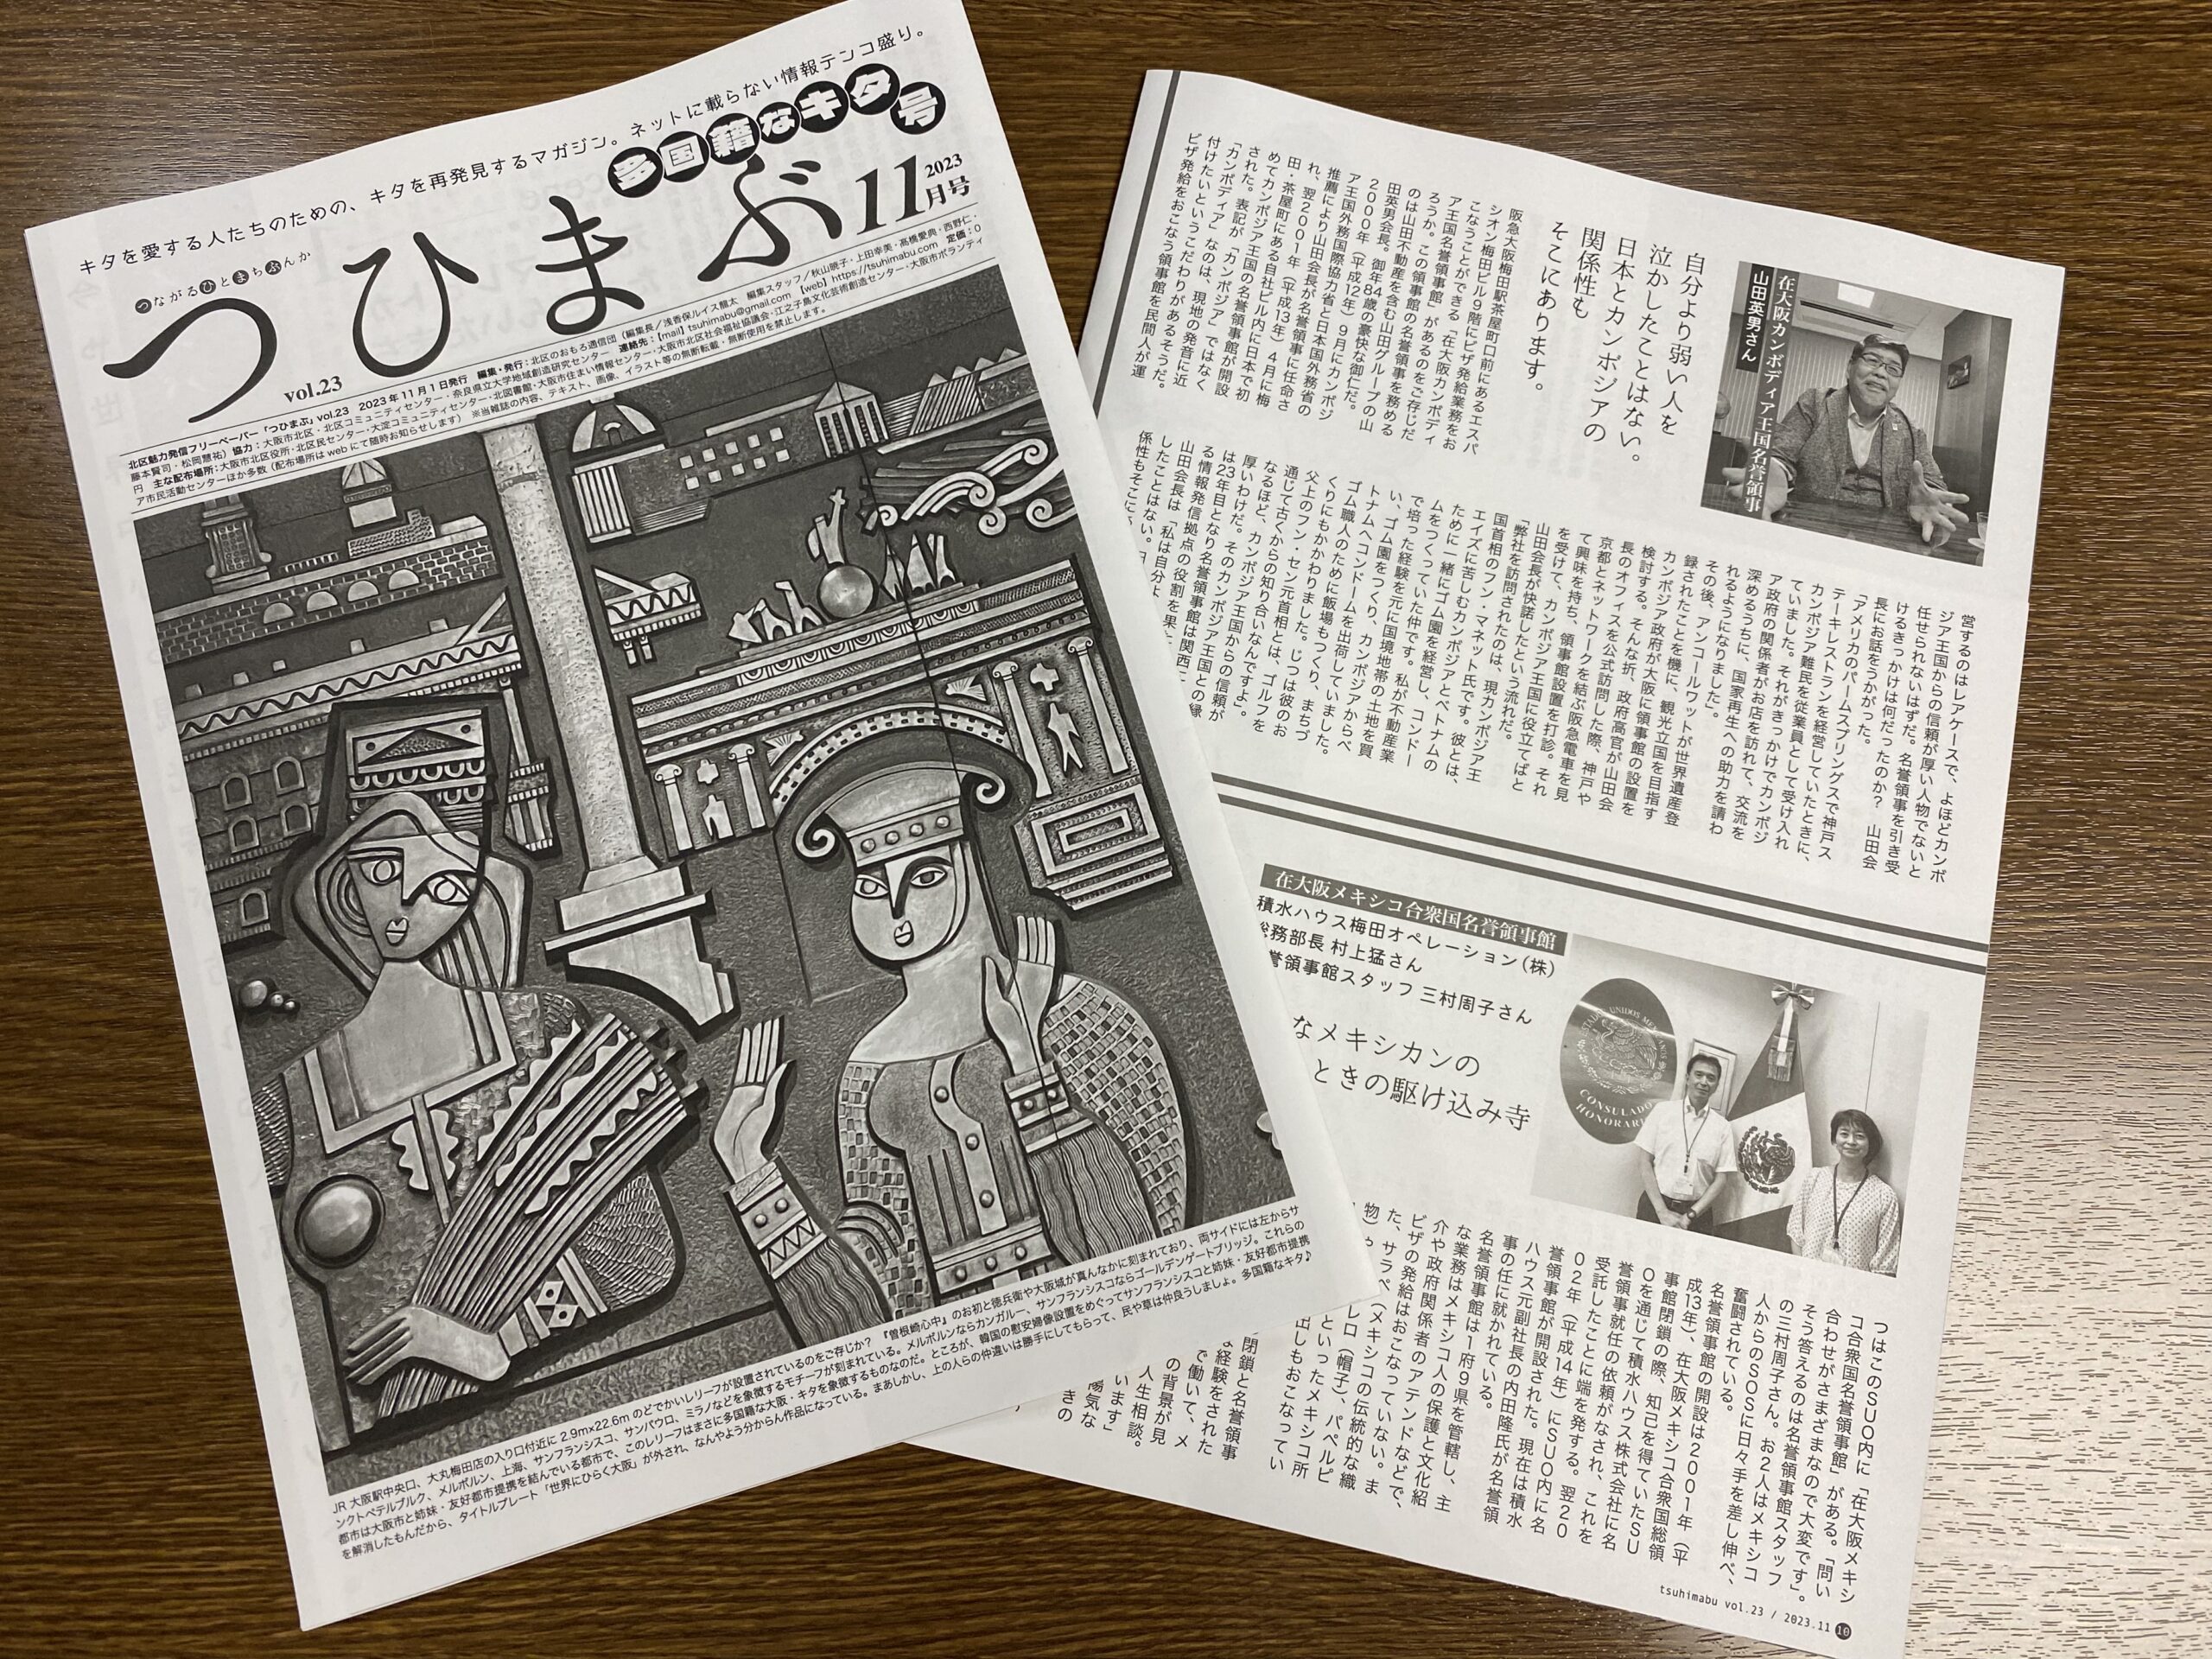 キタを愛する人たちのための、キタを再発見するマガジン。ネットに載らない情報テンコ盛り。
多国籍なキタ号
つながるひとまちぶんか
つひまぶ
2023
11月号
vol.23
北区魅力発信フリーペーパー「つひまぶ」vol.23 2023年11月1日発行 編集・発行：北区のおもろ通信団（編集長／浅香保ルイス龍太 編集スタッフ／秋山暁子・上田幸美・高橋愛典・西野仁・
藤本賢司・松岡慧祐）協力：大阪市北区・北区コミュニティセンター・奈良県立大学地域創造研究センター 連絡先：【mail】tsuhimabu@gmail.com 【web】https://tsuhimabu.com 定価：0
円 主な配布場所：大阪市北区役所・北区民センター・大淀コミュニティセンター・北図書館・大阪市住まい情報センター・大阪市北区社会福祉協議会・江之子島文化芸術創造センター・大阪市ボランティ
ア市民活動センターほか多数（配布場所はwebにて随時お知らせします） ※当雑誌の内容、テキスト、画像、イラスト等の無断転載・無断使用を禁止します。
JR大阪駅中央口、大丸梅田店の入り口付近に2.9m×22.6mのどでかいレリーフが設置されているのをご存じか？『曽根崎心中』のお初と徳兵衛や大阪城が真んなかに刻まれており、両サイドには左からサ
ンクトペテルブルク、メルボルン、上海、サンフランシスコ、サンパウロ、ミラノなどを象徴するモチーフが刻まれている。メルボルンならカンガルー、サンフランシスコならゴールデンゲートブリッジ。これらの
都市は大阪市と姉妹・友好都市提携を結んでいる都市で、このレリーフはまさに多国籍な大阪・キタを象徴するものなのだ。ところが、韓国の慰安婦像設置をめぐってサンフランシスコと姉妹・友好都市提携
を解消したもんだから、タイトルプレート「世界にひらく大阪」が外され、なんやよう分からん作品になっている。まあしかし、上の人らの仲違いは勝手にしてもらって、民や草は仲良うしましょ。多国籍なキタ♪
在大阪カンボディア王国名誉領事
山田英男さん
自分より弱い人を
泣かしたことはない。
日本とカンボジアの
関係性も
そこにあります。
阪急大阪梅田駅茶屋町口前にあるエスパ
シオン梅田ビル9階にビザ発給業務をお
こなうことができる「在大阪カンボディ
ア王国名誉領事館」があるのをご存じだ
ろうか。この領事館の名誉領事を務める
のは山田不動産を含む山田グループの山
田英男会長。御年84歳の豪快な御仁だ。
2000年（平成12年）9月にカンボジ
ア王国外務国際協力省と日本国外務省の
推薦により山田会長が名誉領事に任命さ
れ、翌2001年（平成13年）4月に梅
田・茶屋町にある自社ビル内に日本で初
めてカンボジア王国の名誉領事館が開設
された。表記が「カンボジア」ではなく
「カンボディア」なのは、現地の発音に近
付けたいというこだわりがあるそうだ。
ビザ発給をおこなう領事館を民間人が運
営するのはレアケースで、よほどカンボ
ジア王国からの信頼が厚い人物でないと
任せられないはずだ。名誉領事を引き受
けるきっかけは何だったのか？ 山田会
長にお話をうかがった。
「アメリカのパームスプリングスで神戸ス
テーキレストランを経営していたときに、
カンボジア難民を従業員として受け入れ
ていました。それがきっかけでカンボジ
ア政府の関係者がお店を訪れて、交流を
深めるうちに、国家再生への助力を請わ
れるようになりました」。
その後、アンコールワットが世界遺産登
録されたことを機に、観光立国を目指す
カンボジア政府が大阪に領事館の設置を
検討する。そんな折、政府高官が山田会
長のオフィスを公式訪問した際、神戸や
京都とネットワークを結ぶ阪急電車を見
て興味を持ち、領事館設置を打診。それ
を受けて、カンボジア王国に役立てばと
山田会長が快諾したという流れだ。
「弊社を訪問されたのは、現カンボジア王
国首相のフン・マネット氏です。彼とは、
エイズに苦しむカンボジアとベトナムの
ために一緒にゴム園を経営し、コンドー
ムをつくっていた仲です。私が不動産業
で培った経験を元に国境地帯の土地を買
い、ゴム園をつくり、カンボジアからベ
トナムへコンドームを出荷していました。
ゴム職人のために飯場もつくり、まちづ
くりにもかかわりました。じつは彼のお
父上のフン・セン元首相とは、ゴルフを
通じて古くからの知り合いなんですよ」。
なるほど、カンボジア王国からの信頼が
厚いわけだ。そのカンボジア王国との縁
は32年目となり名誉領事館は関西に
る情報発信拠点の役割を果た
山田会長は「私は自分よ
したことはない。日
係性もそこに
在大阪メキシコ合衆国名誉領事館
積水ハウス梅田オペレーション（株）
総務部長 村上猛さん
誉領事館スタッフ 三村周子さん
なメキシカンの
ときの駆け込み寺
ESTADOS UNIDOS MEXICANOS
CONSULADO
HONORARIO
つはこのSUO内に「在大阪メキシ
コ合衆国名誉領事館」がある。「問い
合わせがさまざまなので大変です」。
そう答えるのは名誉領事館スタッフ
の三村周子さん。お2人はメキシコ
人からのSOSに日々手を差し伸べ、
奮闘されている。
名誉領事館の開設は2001年（平
成13年）、在大阪メキシコ合衆国総領
事館閉鎖の際、知己を得ていたSU
Oを通じて積水ハウス株式会社に名
誉領事就任の依頼がなされ、これを
受託したことに端を発する。翌20
02年（平成14年）にSUO内に名
誉領事館が開設された。現在は積水
ハウス元副社長の内田隆氏が名誉領
事の任に就かれている。
名誉領事館は一府9県を管轄し、主
な業務はメキシコ人の保護と文化紹
介や政府関係者のアテンドなどで、
ビザの発給はおこなっていない。ま
た、サラペ（メキシコの伝統的な織
物）や
レロ（帽子）、パペルピ
といったメキシコ所
出しもおこなってい
閉鎖と名誉領事
な経験をされた
で働いて、メ
の背景が見
人生相談。
います」
陽気な
きの
tsuhimabu vol.23 / 2023.11 10